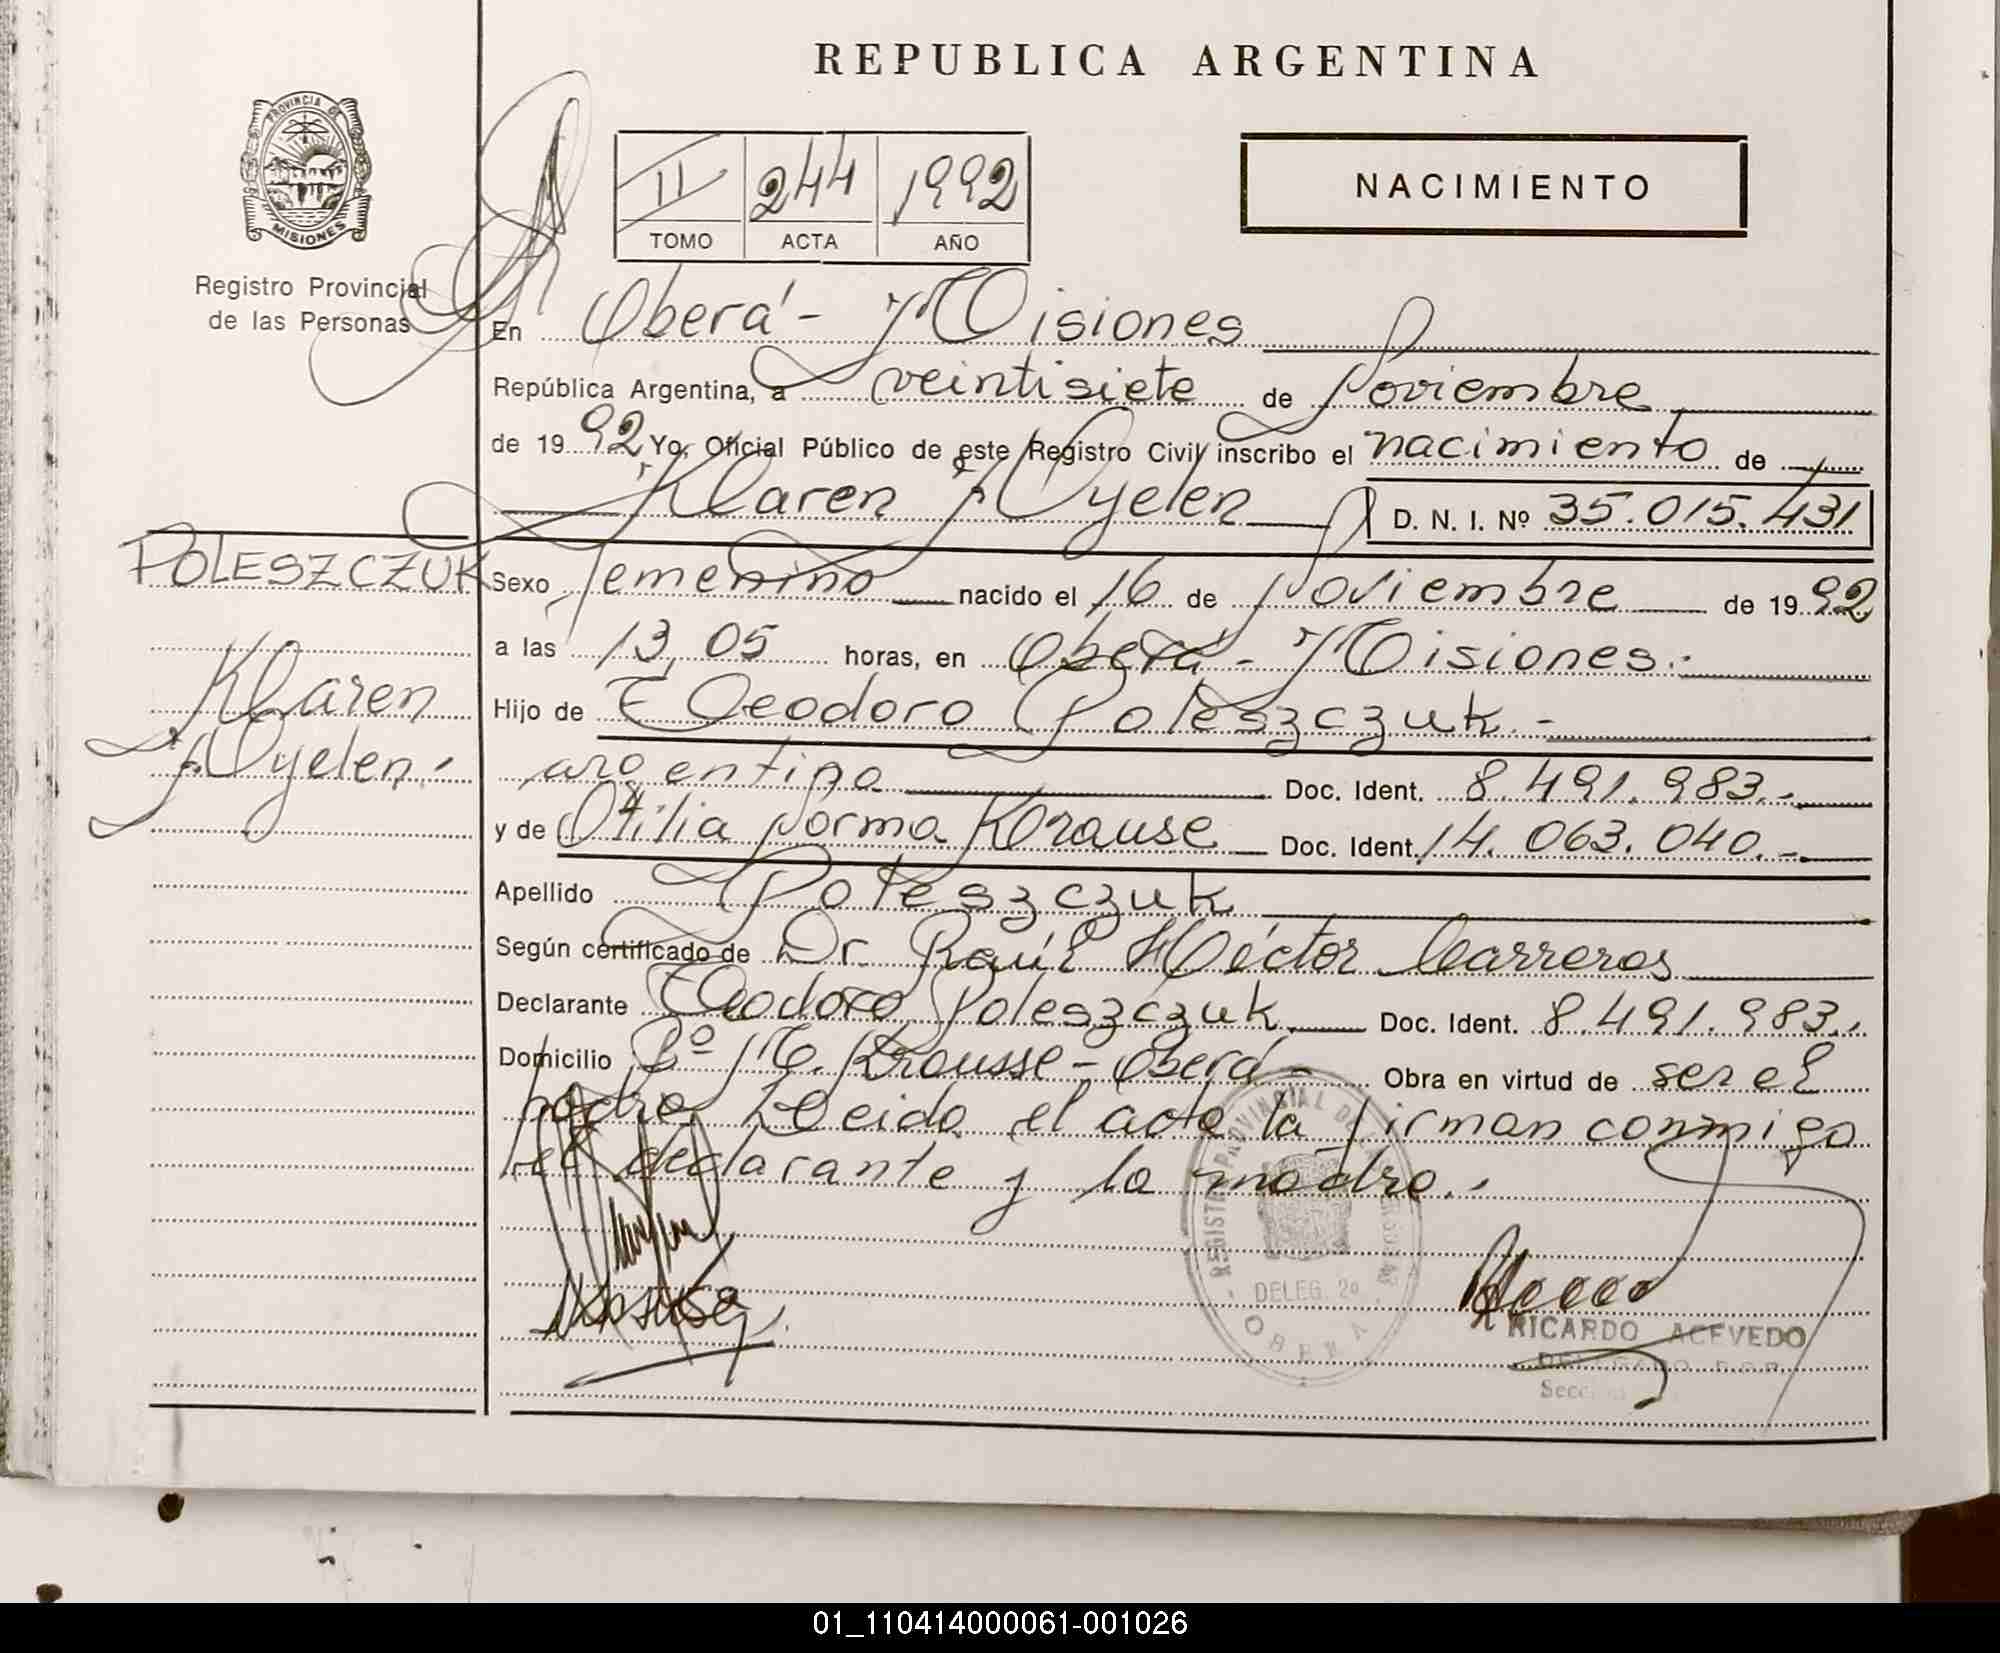 REPUBLICA ARGENTINA
PROVINCIA DE
MISIONES
Registro Provincial
de las Personas
II 244 1992
TOMO ACTA AÑO
NACIMIENTO
En Oberá - Misiones
República Argentina, a veintisiete de Noviembre
de 1992 Yo, Oficial Público de este Registro Civil inscribo el nacimiento de
Karen Ayelen D. N. I. Nº 35.015.431
POLESZCZUK
Karen
Ayelen.
Sexo femenino nacido el 16 de Noviembre de 1992
a las 13,05 horas, en Oberá - Misiones.-
Hijo de Teodoro Poleszczuk.-
argentino Doc. Ident. 8.491.983.-
y de Otilia Norma Krause Doc. Ident. 14.063.040.-
Apellido Poleszczuk
Según certificado de Dr. Raúl Héctor Carreras
Declarante Teodoro Poleszczuk Doc. Ident. 8.491.983.
Domicilio Bº M. Krausse - Oberá - Obra en virtud de ser el
padre. Leida el acta la firman conmigo
el declarante y la madre.-
REGISTRO PROVINCIAL DE LAS PERSONAS
DELEG. 2º
OBERA
RICARDO ACEVEDO
01_110414000061-001026